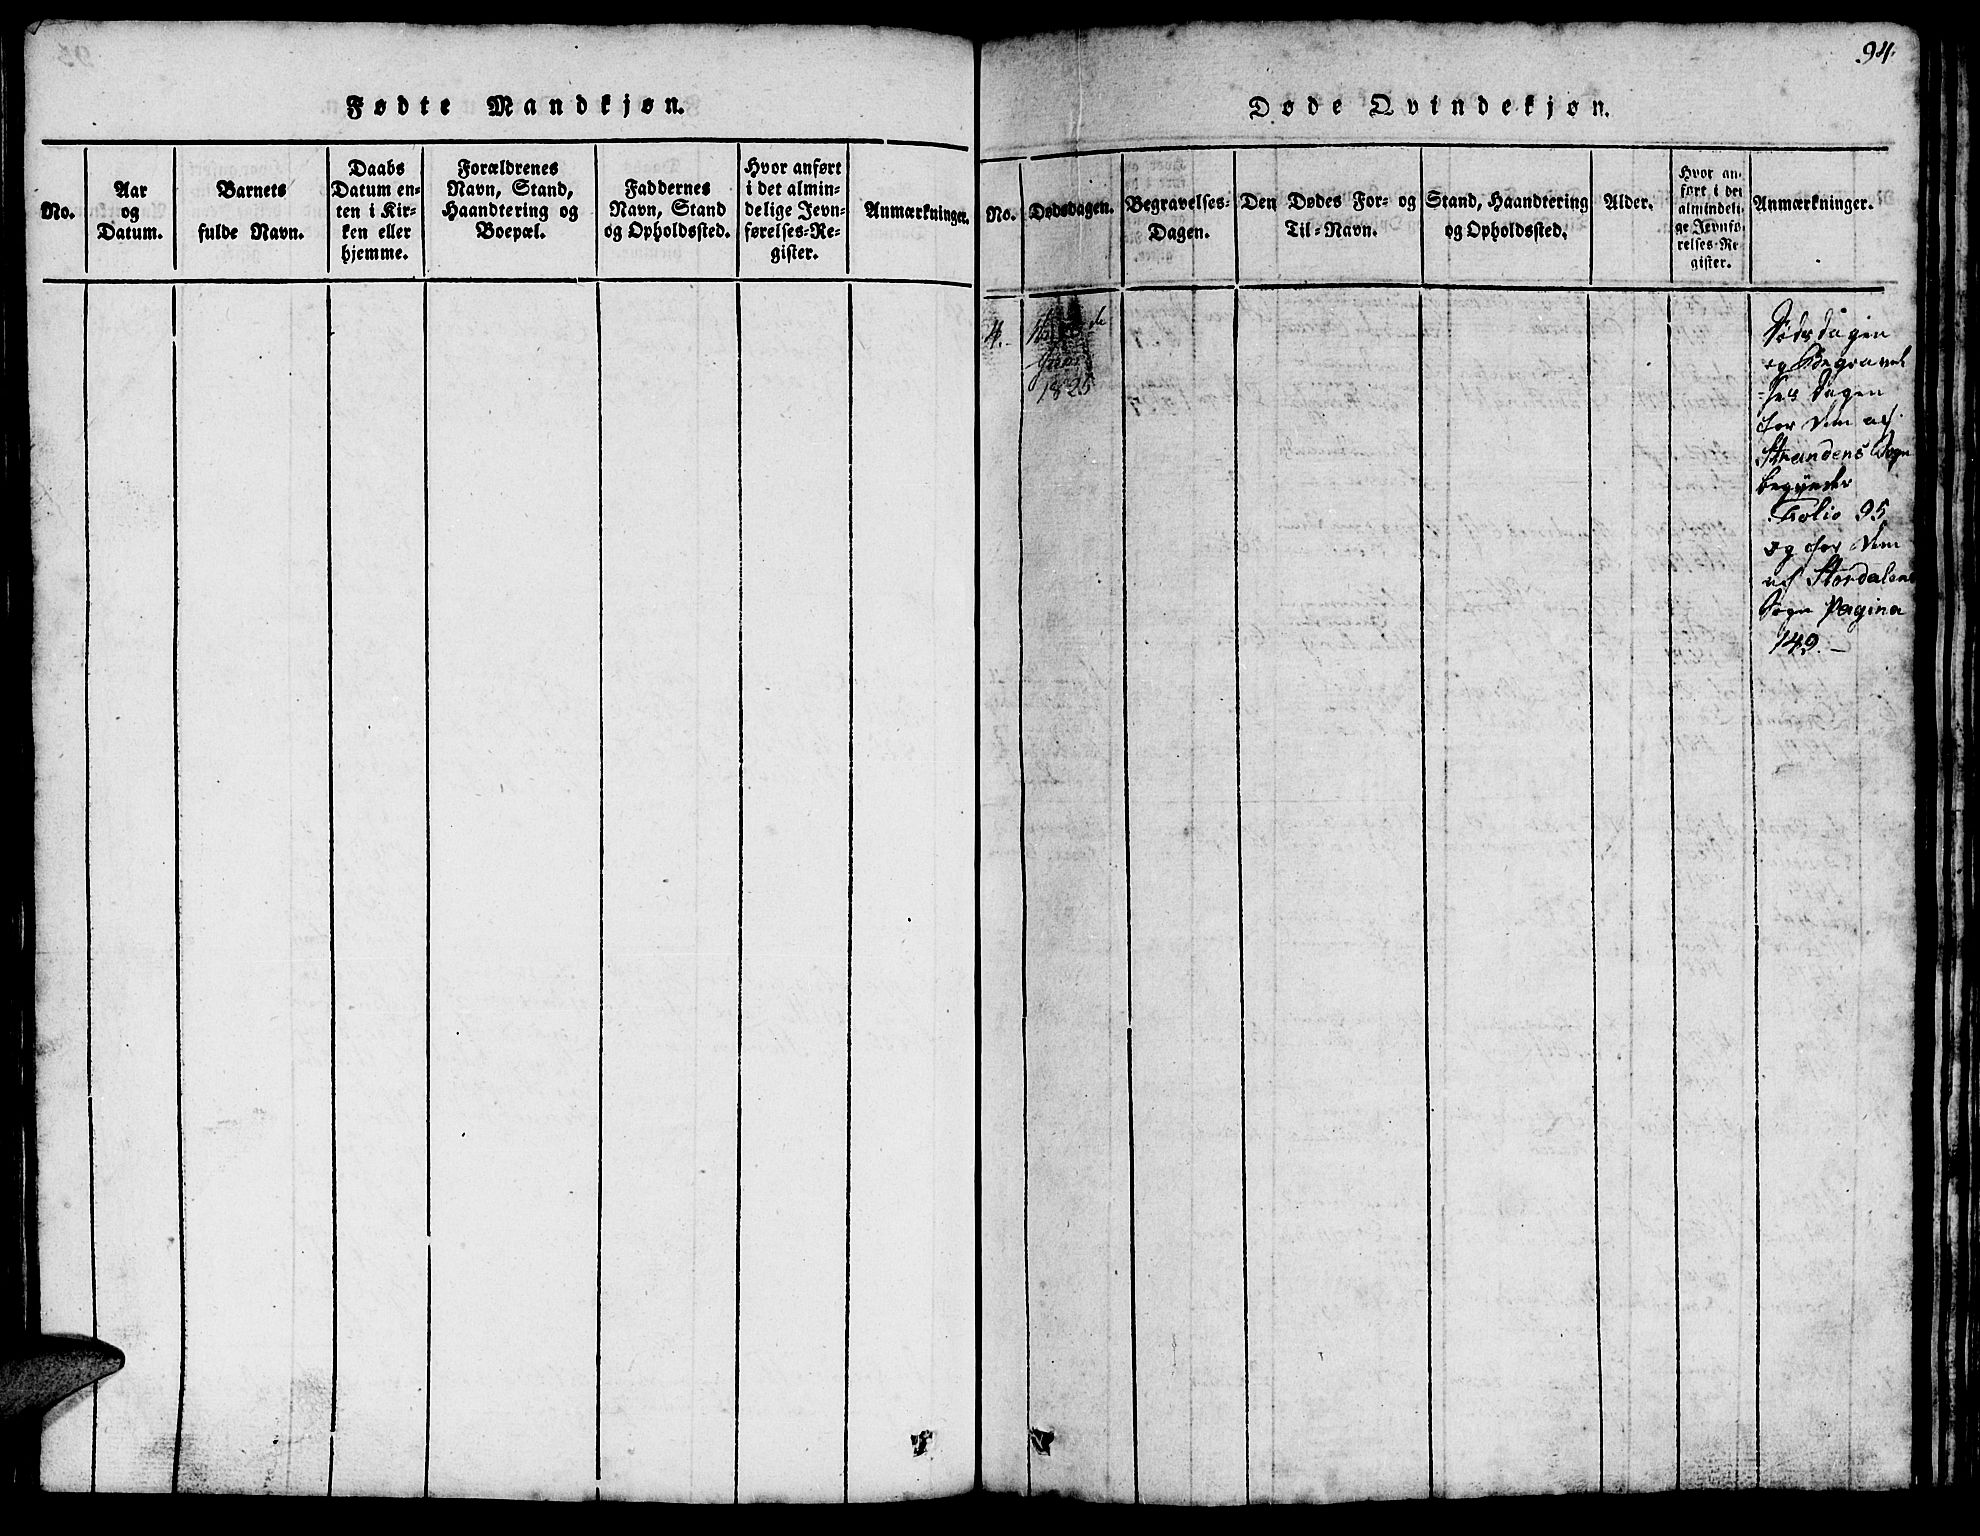 94.
Fødte Mandkjøn.
No.
Aar
og
Datum.
Barnets
fulde Navn.
Daabs
Datum en-
ten i Kir-
ken eller
hjemme.
Forældrenes
Navn, Stand,
Haandtering og
Boepæl.
Faddernes
Navn, Stand
og Opholdssted.
Hvor anført
i det almin-
delige Jevn-
førelses-Re-
gister.
Anmærkninger.
Døde Qvindekjøn.
No.
Dødsdagen.
Begravelses-
Dagen.
Den Dødes For- og
Til-Navn.
Stand, Haandtering
og Opholdssted.
Alder.
Hvor an-
ført i det
almindeli-
ge Jevnfø-
relses-Re-
gister.
Anmærkninger.
4.
1825
Dødsdagen
og Begravel
=ses Dagen
for dem af
Strandens Sogn
begynder
Folio 95
og for dem
af Stordalens
Sogn Pagina
149.-